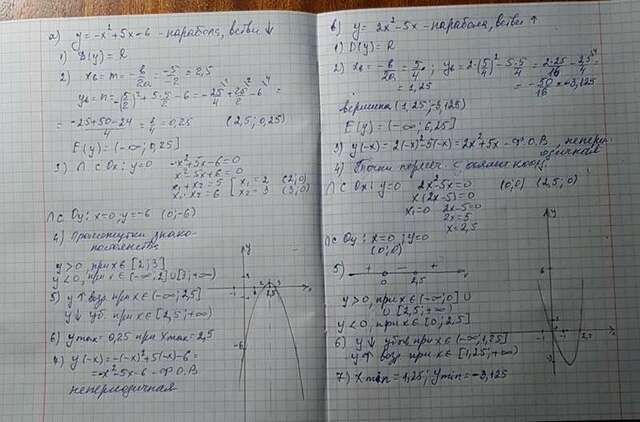 а) y = -x² + 5x - 6 - парабола, ветви ↓
1) D(y) = R
2) xв = m = -b/2a = -5/-2 = 2,5
yв = n = -(5/2)² + 5·5/2 - 6 = -25/4 + 25/2 - 6 =
= (-25+50-24)/4 = 1/4 = 0,25 (2,5; 0,25)
E(y) = (-∞; 0,25]
3) ∩ с Ox: y=0 -x²+5x-6=0
x²-5x+6=0
x₁+x₂=5 [x₁=2 (2;0)
x₁·x₂=6 [x₂=3 (3;0)
∩ с Oy: x=0, y=-6 (0;-6)
4) Промежутки знако-
постоянства
y>0, при x∈[2;3]
y<0, при x∈(-∞;2]∪[3;+∞)
5) y↑ возр. при x∈(-∞;2,5]
y↓ уб. при x∈[2,5;+∞)
6) ymax = 0,25 при xmax = 2,5
7) y(-x) = -(-x)²+5(-x)-6 =
= -x²-5x-6 - Ф.О.В
непериодичная
y
-1 1 2,5 3 x
-6
в) y = 2x²-5x - парабола, ветви ↑
1) D(y) = R
2) xв = -b/2a = 5/4 = 1,25; yв = 2·(5/4)²-5·5/4 = 2·25/16 - 25/4 =
= -50/16 = -3,125
вершина (1,25; -3,125)
E(y) = (-∞; 6,25]
3) y(-x) = 2(-x)²-5(-x) = 2x²+5x - Ф.О.В, непери-
одичная
4) Точки пересеч. с осями коорд.
∩ с Ox: y=0 2x²-5x=0 (0;0) (2,5;0)
x(2x-5)=0
x₁=0 2x-5=0
2x=5
x=2,5
∩ с Oy: x=0; y=0
(0;0)
5) + - + x
0 2,5
y>0, при x∈(-∞;0]∪
∪[2,5;+∞)
y<0, при x∈[0;2,5]
6) y↓ убыв. при x∈(-∞;1,25]
y↑ возр. при x∈[1,25;+∞)
7) xmin = 1,25; ymin = -3,125
y
6
-1